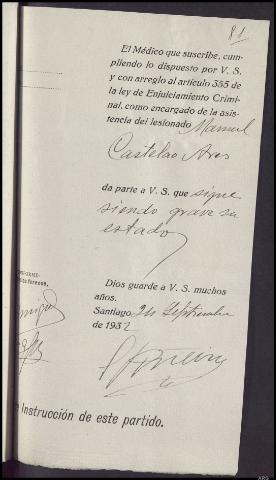 81
El Médico que suscribe, cum-
pliendo lo dispuesto por V. S.
y con arreglo al artículo 355 de
la ley de Enjuiciamiento Crimi-
nal, como encargado de la asis-
tencia del lesionado Manuel
Castelao Ares
da parte a V. S. que sigue
siendo grave su
estado
Dios guarde a V. S. muchos
años.
Santiago, 24 Septiembre
de 1932
n Instrucción de este partido.